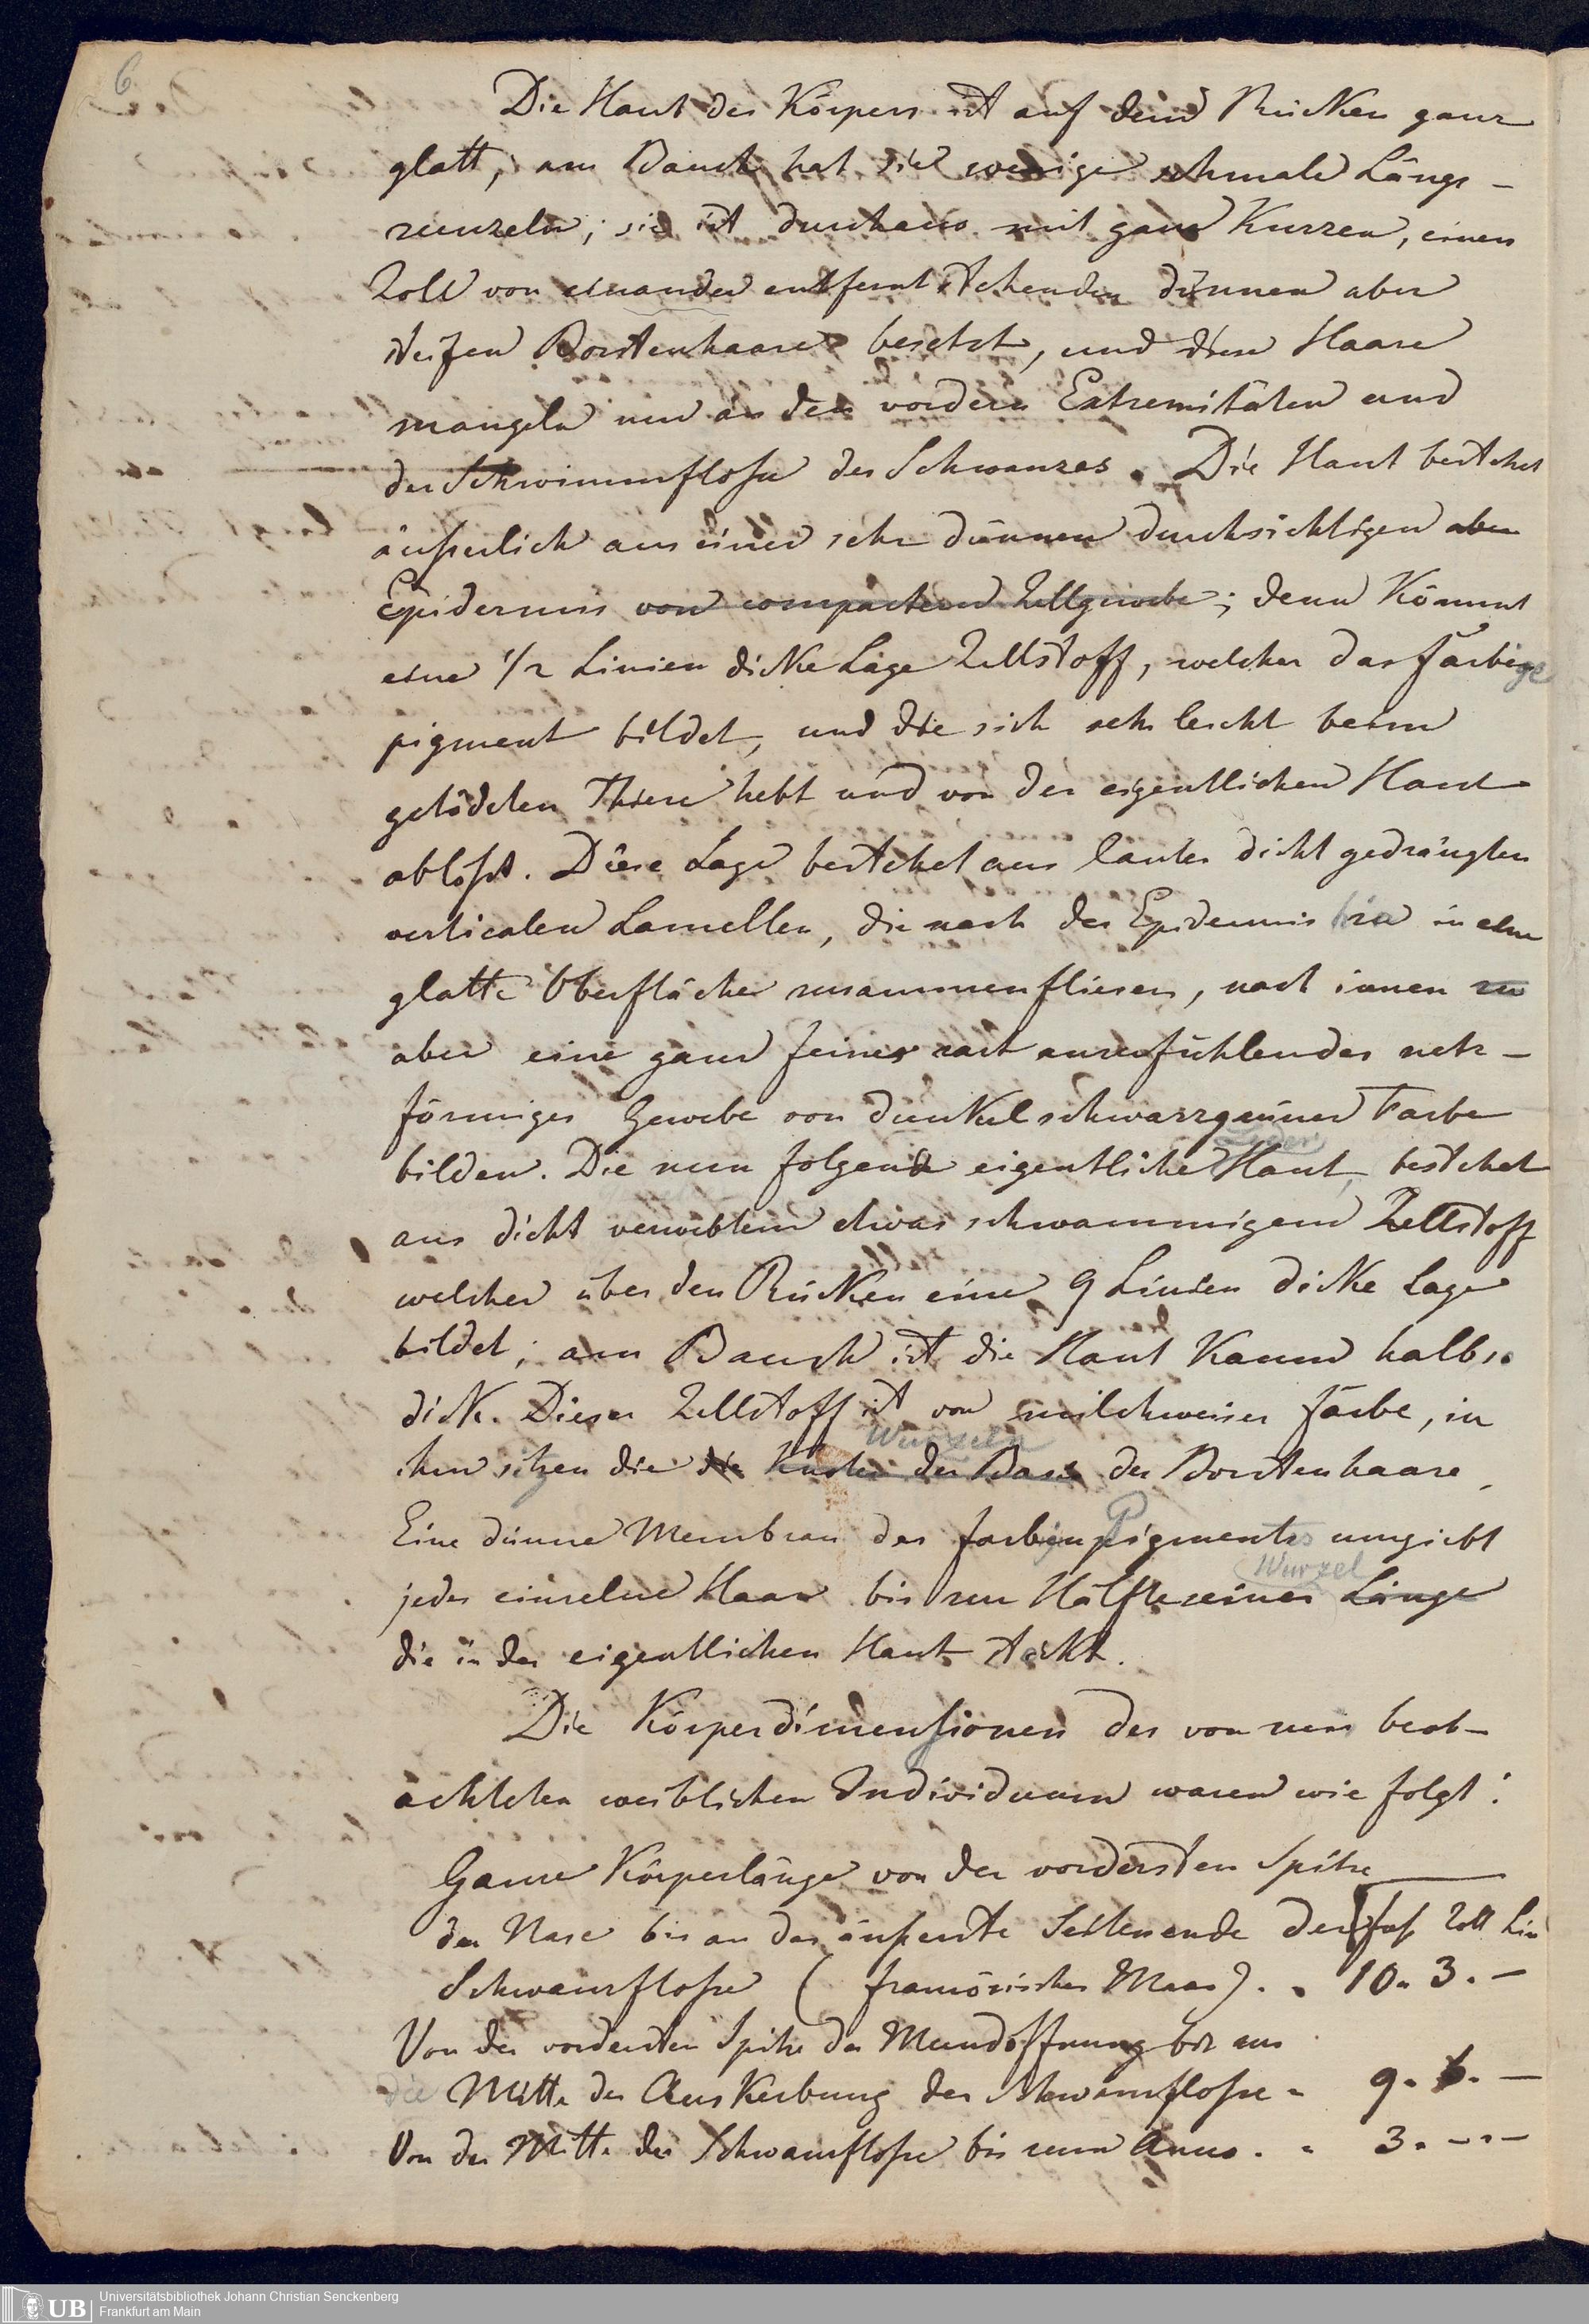 6
Die Haut des Körpers ist auf dem Rücken ganz
glatt, am Bauch hat sie wenige schmale Längs-
runzeln; sie ist durchaus mit ganz kurzen, einen
Zoll von einander entfernt stehenden dünnen aber
steifen Borstenhaaren besetzt, und diese Haare
mangeln nur an den vordern Extremitäten und
der Schwimmflosse des Schwanzes. Die Haut bestehet
äusserlich aus einer sehr dünnen durchsichtigen aber
Epidermis von compactem Zellgewebe; denn kömmt
eine 1/2 Linien dicke Lage Zellstoff, welcher das färbige
pigment bildet, und die sich sehr leicht beim
getödeten Thiere hebt und von der eigentlichen Haut
ablösst. Diese Lage bestehet aus lauter dicht gedrängten
verticalen Lamellen, die nach der Epidermis hin in eine
glatte Oberfläche zusammenfliesen, nach innen zu
aber eine ganz feines zart anzufühlendes netz-
förmiges Gewebe von dunkelschwarzgrüner Farbe
bilden. Die nun folgende eigentliche Haut bestehet
aus dicht verwebtem etwas schwammigem Zellstoff
welcher über den Rücken eine 9 Linien dicke Lage
bildet; am Bauch ist die Haut kaum halb so
dick. Dieser Zellstoff ist von milchweiser Farbe, in
Wurzeln
ihm sitzen die die Knoten der Basis der Borstenhaare
Eine dünne Membran des farbigen Pigments umgiebt
Wurzel
jedes einzelne Haar bis zur Hälfte seiner Länge
die in der eigentlichen Haut steckt.
Die Körperdimensionen des von uns beob-
achteten weiblichen Individuum waren wie folgt:
Ganze Körperlänge von der vordersten Spitze
der Nase bis an das äusserste Seitenende der Fuss Zoll Lin
Schwanzflosse (französisches Maas) . . 10. 3. –
Von der vordersten Spitze der Mundöffnung bis an
die Mitte der Auskerbung der Schwanzflosse . 9. 6. –
Von der Mitte der Schwanzflosse bis zum Anus . . 3. – . –
UB
Universitätsbibliothek Johann Christian Senckenberg
Frankfurt am Main